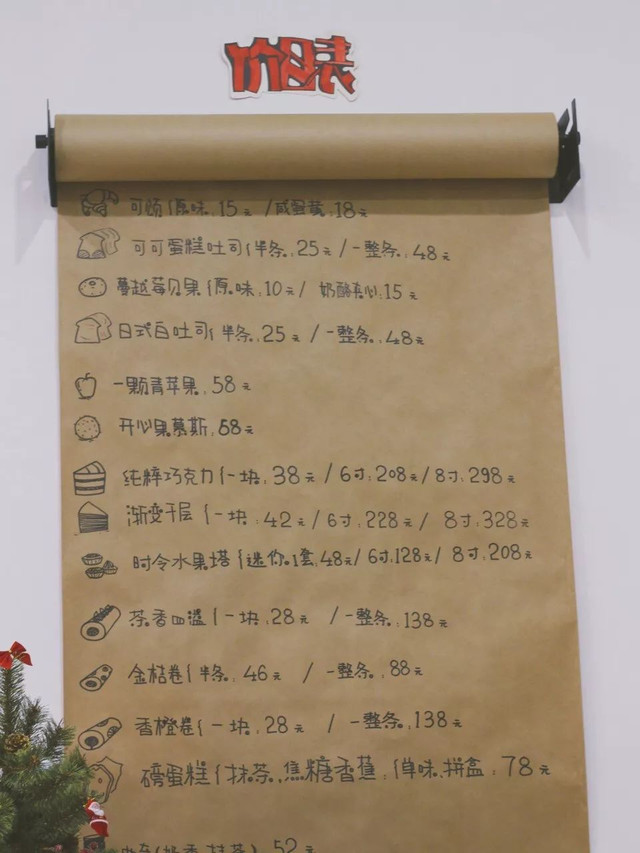 价目表
可颂{原味.15元 /咸蛋黄.18元
可可蛋糕吐司{半条.25元/一整条.48元
蔓越莓贝果{原味.10元/ 奶酪夹心:15元
日式白吐司{半条.25元/一整条.48元
一颗青苹果.58元
开心果慕斯.68元
纯粹巧克力{一块.38元/6寸:208元/8寸.298元
渐变千层{一块:42元/6寸.228元/ 8寸.328元
时令水果塔{迷你.1套.48元/6寸.128元/ 8寸.208元
茶香四溢{一块.28元 /一整条:138元
金桔卷{半条.46元 / 一整条.88元
香橙卷{一块.28元 / 一整条.138元
磅蛋糕{抹茶.焦糖香蕉:{单味.拼盒:78元
抹茶) 52元